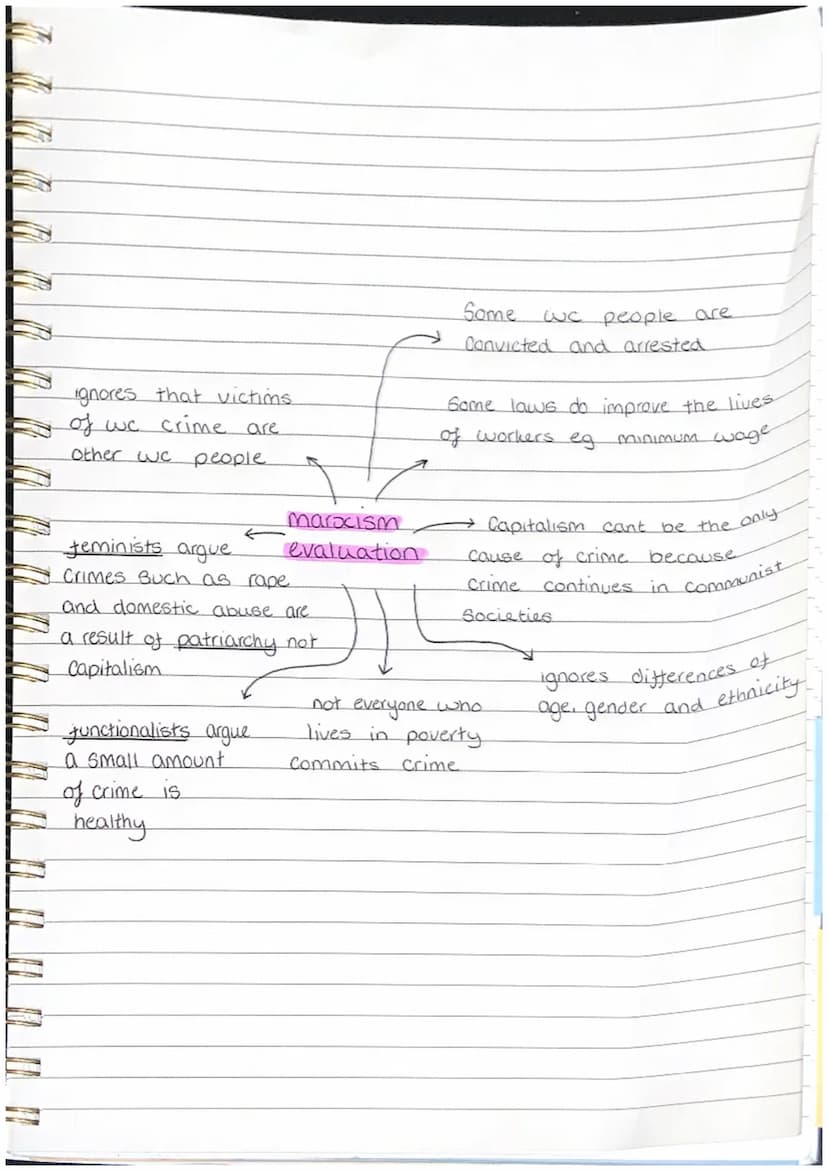 Some wc people are
convicted and arrested
ignores that victims
of wc crime are
other wc people
Some laws do improve the lives
of workers eg minimum wage
marxism
evaluation
Capitalism cant be the only
cause of crime because
crime continues in communist
societies
feminists argue
crimes such as rape
and domestic abuse are
a result of patriarchy not
capitalism
ignores differences of
age, gender and ethnicity
not everyone who
lives in poverty
commits crime
functionalists argue
a small amount
of crime is
healthy